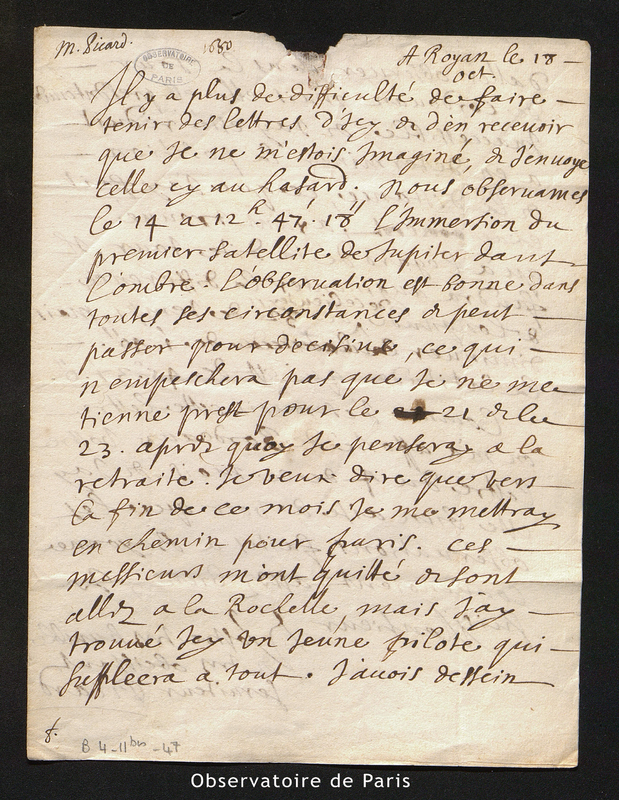 M. Picard. 1680 A Royan le 18
OBSERVATOIRE DE PARIS
oct.
Il y a plus de difficulté de faire
tenir des lettres d'Jcy & d'en recevoir
que Je ne m'estois Imaginé, & J'envoye
celle cy au hasard. Nous observames
le 14 a 12h. 47' 18" l'Immersion du
premier satellite de Jupiter dans
l'ombre. l'observation est bonne dans
toutes ses circonstances & peut
passer pour decisive, ce qui
n'empeschera pas que Je ne me
tienne prest pour le 21 & le
23. aprez quoy Je penseray a la
retraite. Je veux dire que vers
la fin de ce mois Je me mettray
en chemin pour paris. ces
messieurs m'ont quitté & sont
allez a la Rochelle mais J'ay
trouvé Jcy un Jeune pilote qui
suppleera a tout. J'avois dessein
B 4-11bis-47
Observatoire de Paris